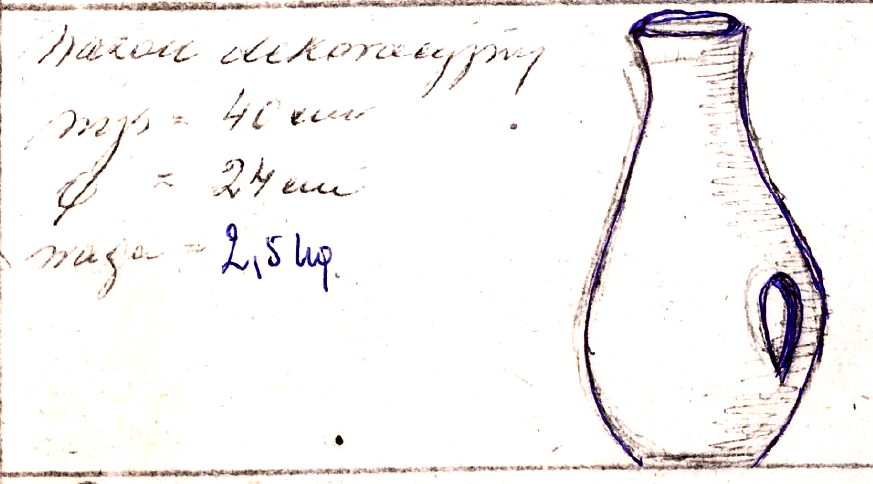 Wazon dekoracyjny
wys = 40 cm
φ = 24 cm
waga = 2,5 kg.